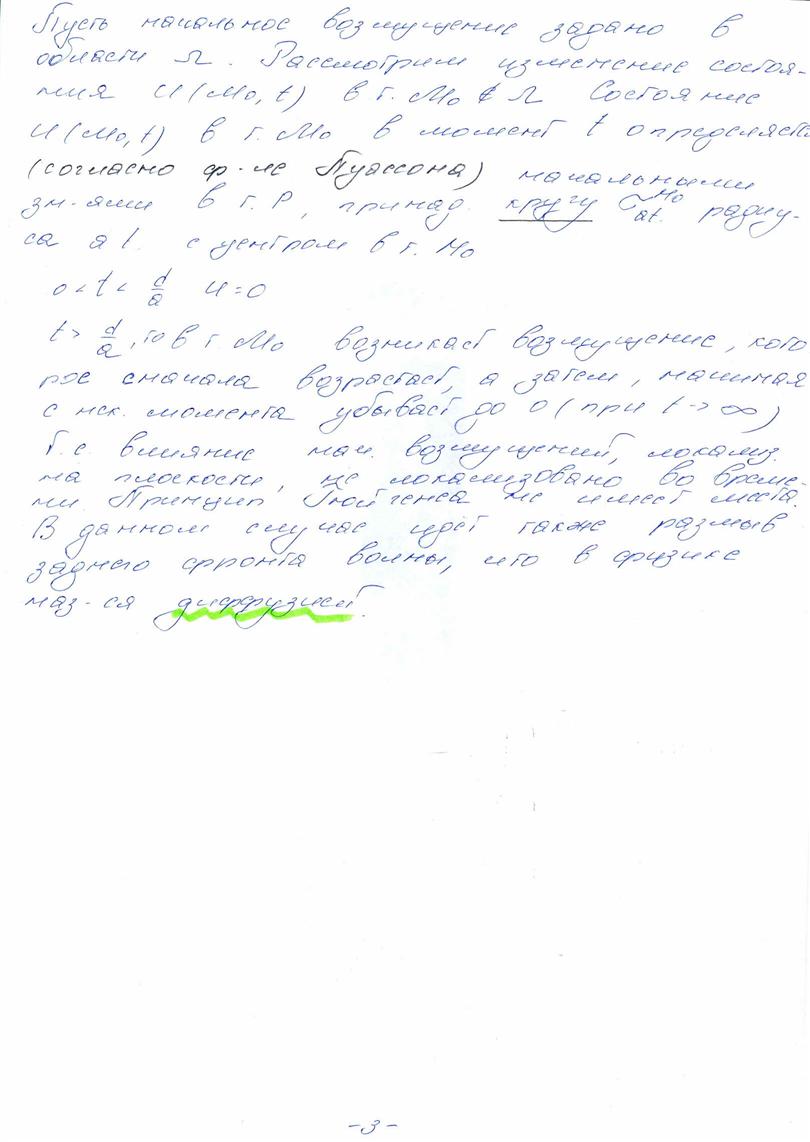 Пусть начальное возмущение задано в
области Ω. Рассмотрим изменение состоя-
ния U(M₀,t) в т. M₀ ∉ Ω Состояние
U(M₀,t) в т. M₀ в момент t определяется
(согласно ф-ле Пуассона) начальными
зн-ями в т. P, принад. кругу Σ_at^M₀ радиу-
са at с центром в т. M₀
0 < t < d/a U = 0
t > d/a, то в т. M₀ возникает возмущение, кото
рое сначала возрастает, а затем, начиная
с нек. момента убывает до 0 (при t → ∞)
Т.е. влияние нач. возмущений, локализ.
на плоскости, не локализовано во време-
ни. Принцип Гюйгенса не имеет места.
В данном случае идёт также размыв
заднего фронта волны, что в физике
наз-ся диффузией.
-3-